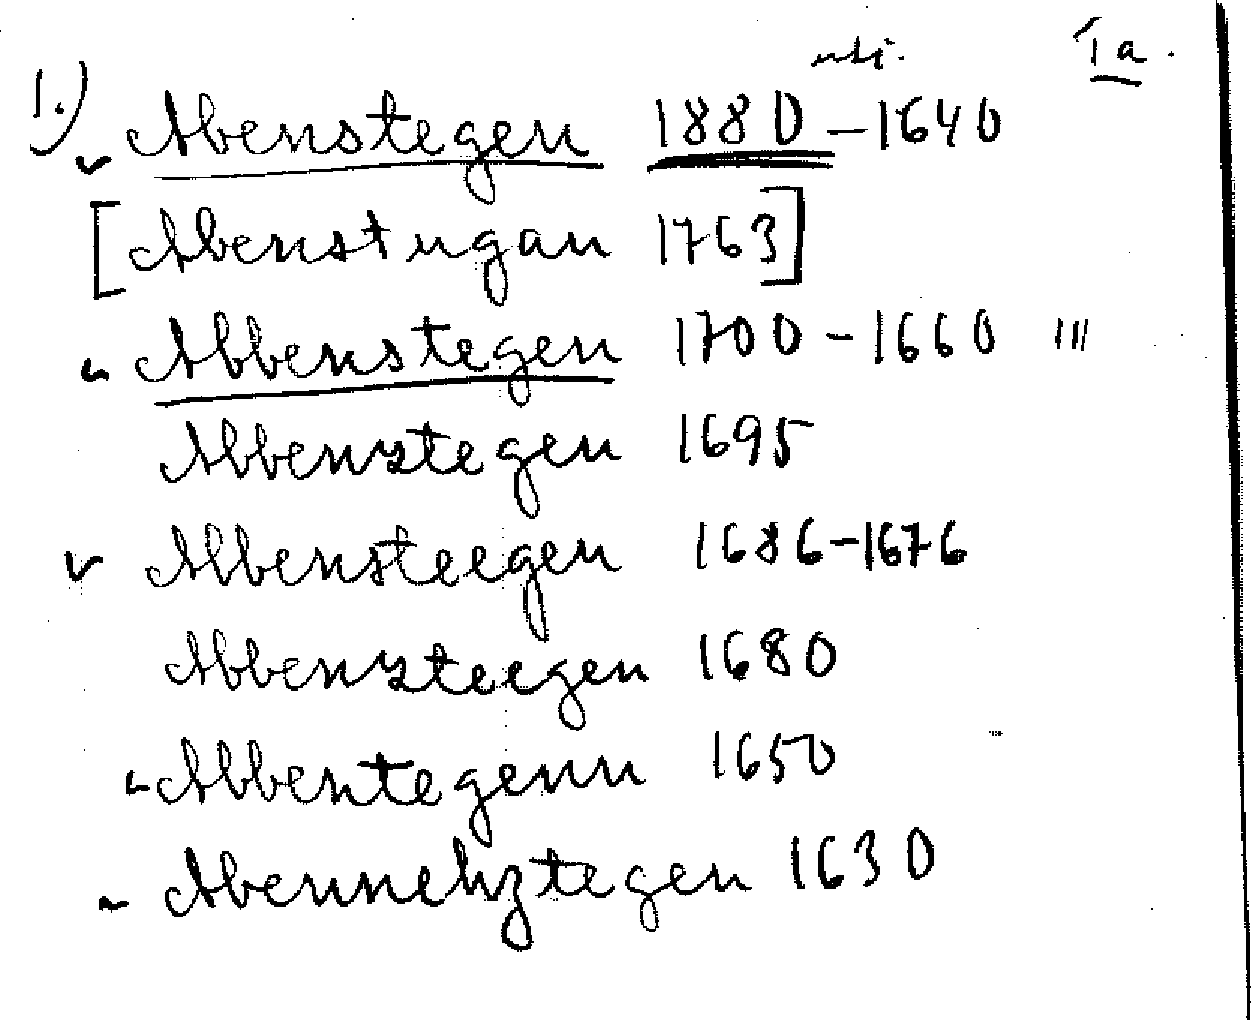 Ta.
1.) Abenstegen 1880-1640
[Abenstugan 1763]
Abbenstegen 1700-1660 III
Abbenztegen 1695
Abbensteegen 1686-1676
Abbenzteegen 1680
Abbentegenn 1650
Abennehztegen 1630